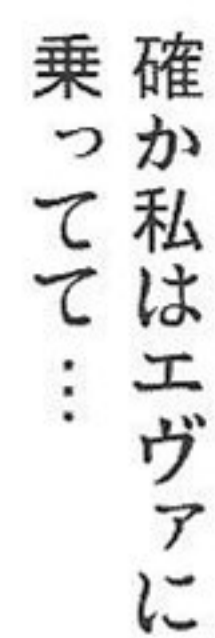 確か私はエヴァに
乗ってて…